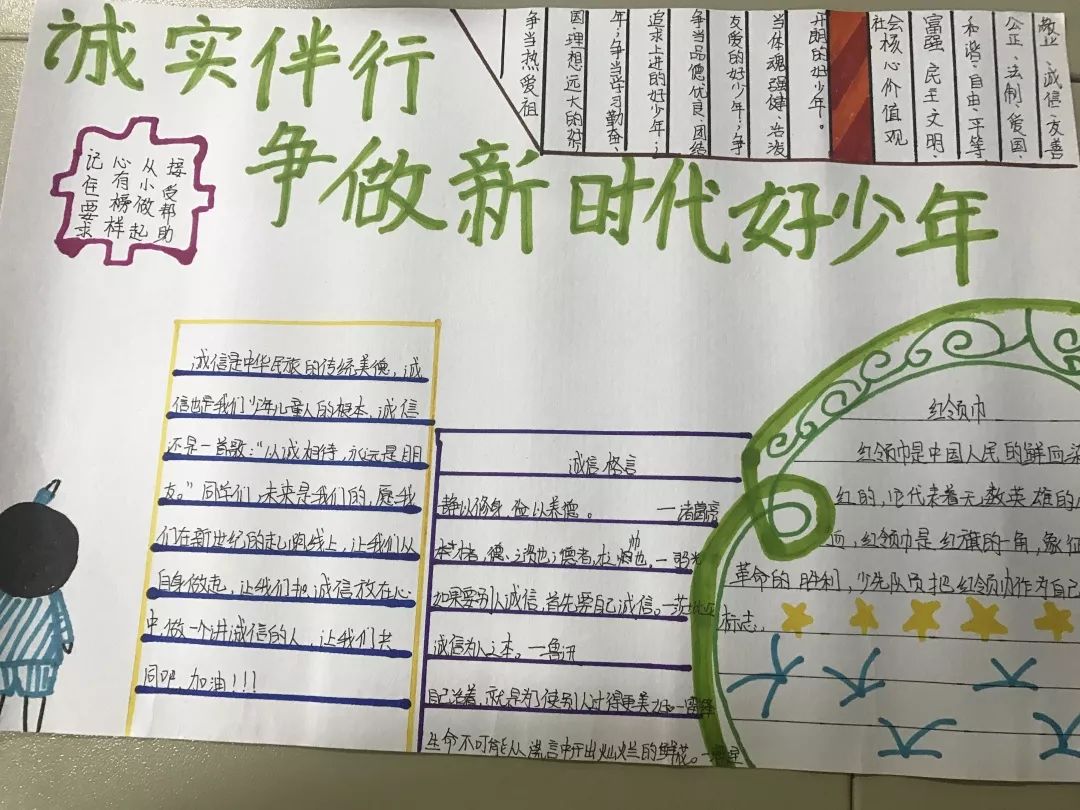 诚实伴行
争做新时代好少年
接受帮助
从小做起
心有榜样
记住要求
争当热爱祖
国理想远大的好
年；争当学习勤奋、
追求上进的好少年；
争当品德优良、团结
友爱的好少年；争
当体魂强健、活泼
开朗的好少年。
社会核心价值观
富强、民主、文明、
和谐、自由、平等
公正、法制、爱国、
敬业、诚信、友善
诚信是中华民族的传统美德，诚
信也是我们少年儿童人的根本，诚信
还是一首歌："以诚相待，永远是朋
友。"同学们，未来是我们的，愿我
们在新世纪的起跑线上，让我们从
自身做起，让我们把诚信放在心
中，做一个讲诚信的人，让我们共
同吧，加油！！！
诚信格言
静以修身，俭以养德。——诸葛亮
德
如果要别人诚信，首先要自己诚信。—莎士比亚
诚信为人之本。—鲁迅
自己活着，就是为了使别人过得更美
生命不可能从谎言中开出灿烂的鲜花。
红领巾
红领巾是中国人民的鲜血染
红的，它代表着无数英雄的
红领巾是红旗的一角，象征
革命的胜利，少先队员把红领巾作为自己
标志。